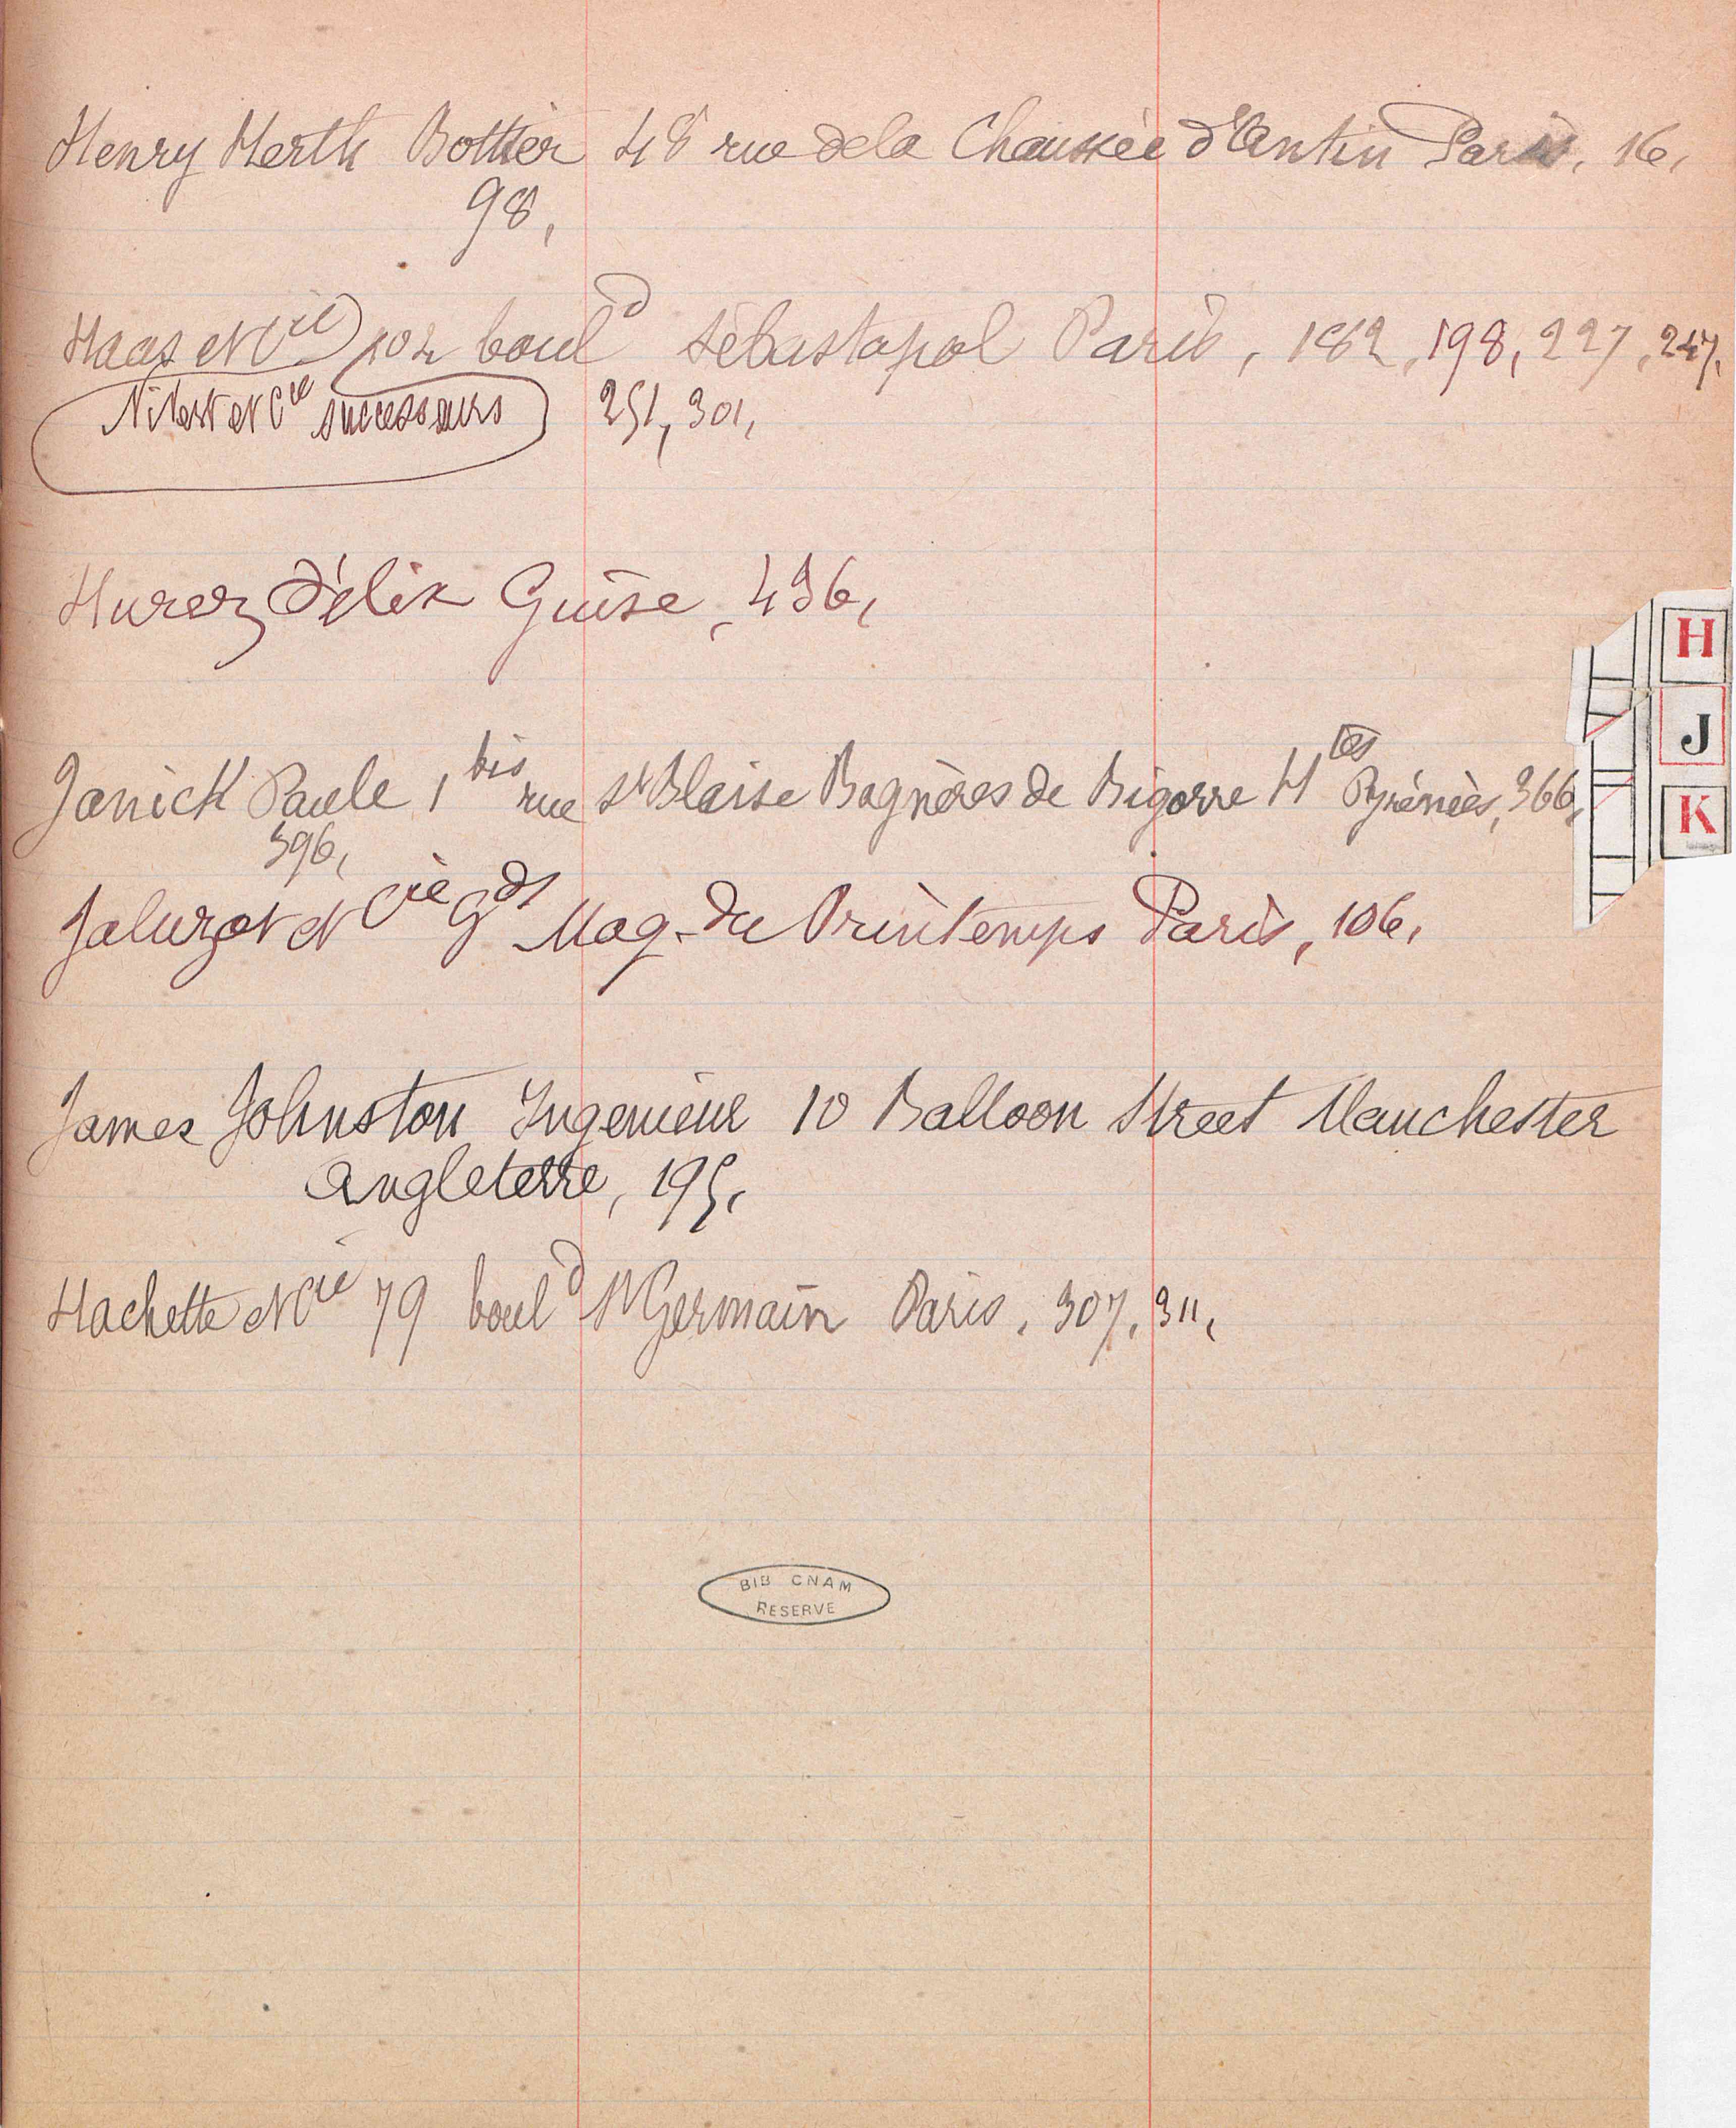 Henry Herth Bottier 48 rue de la Chaussée d'Antin Paris, 16,
98,
Haas et Cie 102 bould Sébastopol Paris, 182, 198, 227, 247,
et Cie successeurs 251, 301,
Hurez Félix Guise, 436,
Janick Paule 1 bis rue St Blaise Bagnères de Bigorre Htes Pyrénées, 366,
396,
Jaluzot et Cie Gds Mag. du Printemps Paris, 106,
James Johnston Ingenieur 10 Balloon Street Manchester
Angleterre, 195,
Hachette et Cie 79 bould St Germain Paris, 307, 311,
H
J
K
BIB CNAM
RESERVE